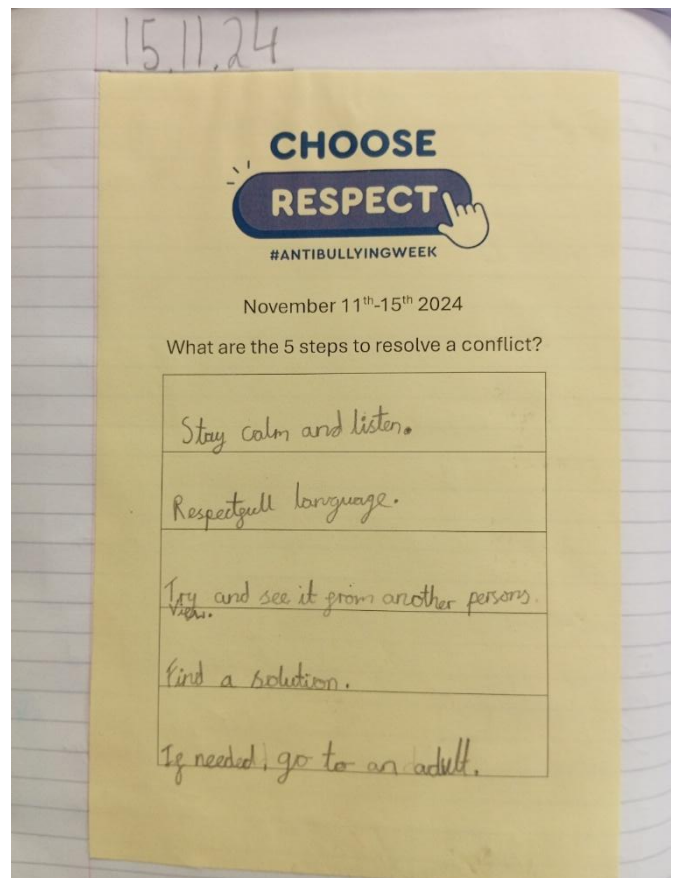 15.11.24
CHOOSE
RESPECT
#ANTIBULLYINGWEEK
November 11th-15th 2024
What are the 5 steps to resolve a conflict?
Stay calm and listen.
Respectfull language.
Try and see it from another persons
view.
Find a solution.
If needed, go to an adult.